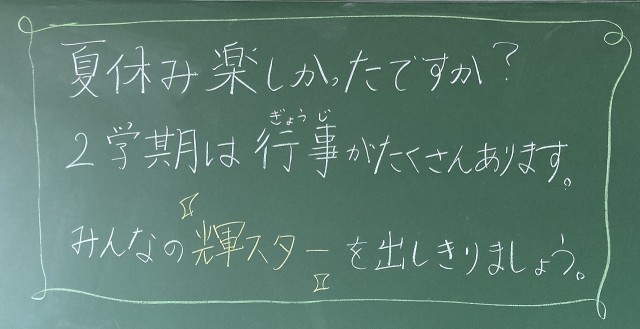 夏休み楽しかったですか?
2学期は行事がたくさんあります。
ぎょうじ
みんなの〝輝スター〟を出しきりましょう。